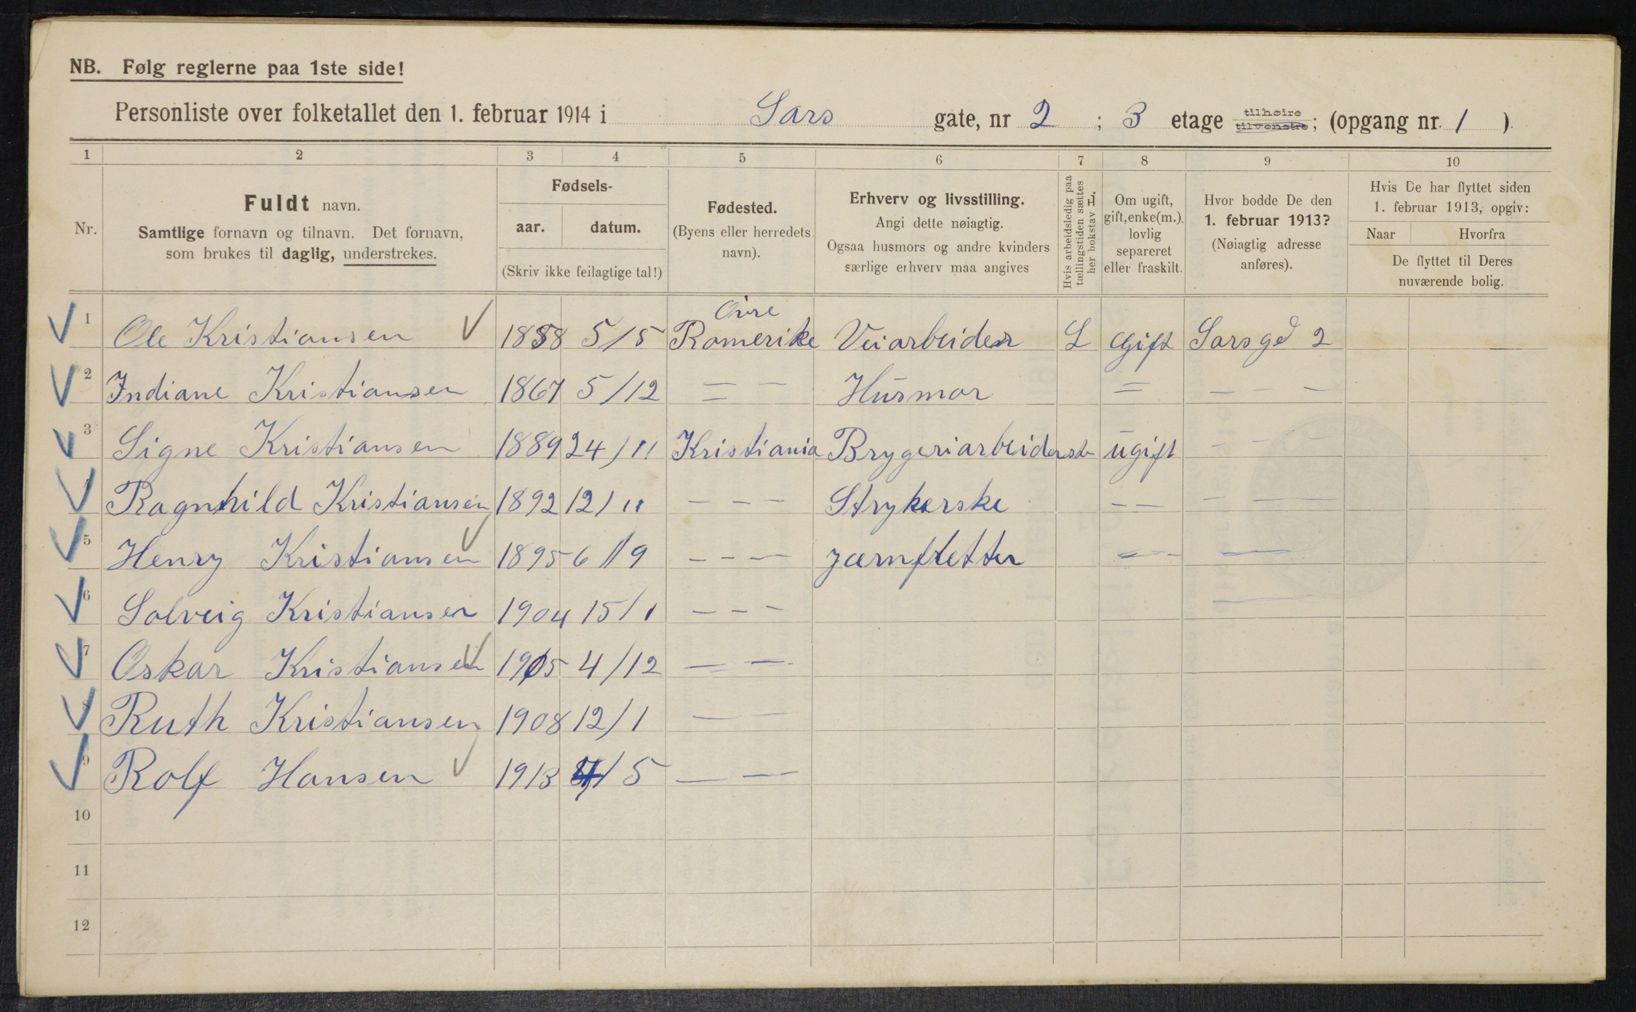 NB. Følg reglerne paa 1ste side!
Personliste over folketallet den 1. februar 1914 i Sars gate, nr 2 ; 3 etage tilhøire tilvenstre; (opgang nr. 1 )
1 2 3 4 5 6 7 8 9 10
Nr.
Fuldt navn.
Samtlige fornavn og tilnavn. Det fornavn,
som brukes til daglig, understrekes.
Fødsels-
aar. datum.
(Skriv ikke feilagtige tal!)
Fødested.
(Byens eller herredets
navn).
Erhverv og livsstilling.
Angi dette nøiagtig.
Ogsaa husmors og andre kvinders
særlige erhverv maa angives
Hvis arbeidsledig paa
tællingstiden sættes
her bokstav L.
Om ugift,
gift, enke(m.).
lovlig
separeret
eller fraskilt.
Hvor bodde De den
1. februar 1913?
(Nøiagtig adresse
anføres).
Hvis De har flyttet siden
1. februar 1913, opgiv:
Naar Hvorfra
De flyttet til Deres
nuværende bolig.
1 Ole Kristiansen 1858 5/5 Øvre Romerike Veiarbeider L Gift Sarsgd 2
2 Indiane Kristiansen 1867 5/12 — — Husmor — — — —
3 Signe Kristiansen 1889 24/11 Kristiania Brygeriarbeiderste ugift — — —
Ragnhild Kristiansen 1892 12/11 — — — Strykerske — — — —
5 Henry Kristiansen 1895 6/9 — — — Jærnfletter — — —
6 Solveig Kristiansen 1904 15/1 — — — —
7 Oskar Kristiansen 1905 4/12 — —
Ruth Kristiansen 1908 12/1 — —
9 Rolf Hansen 1913 4/5 — —
10
11
12